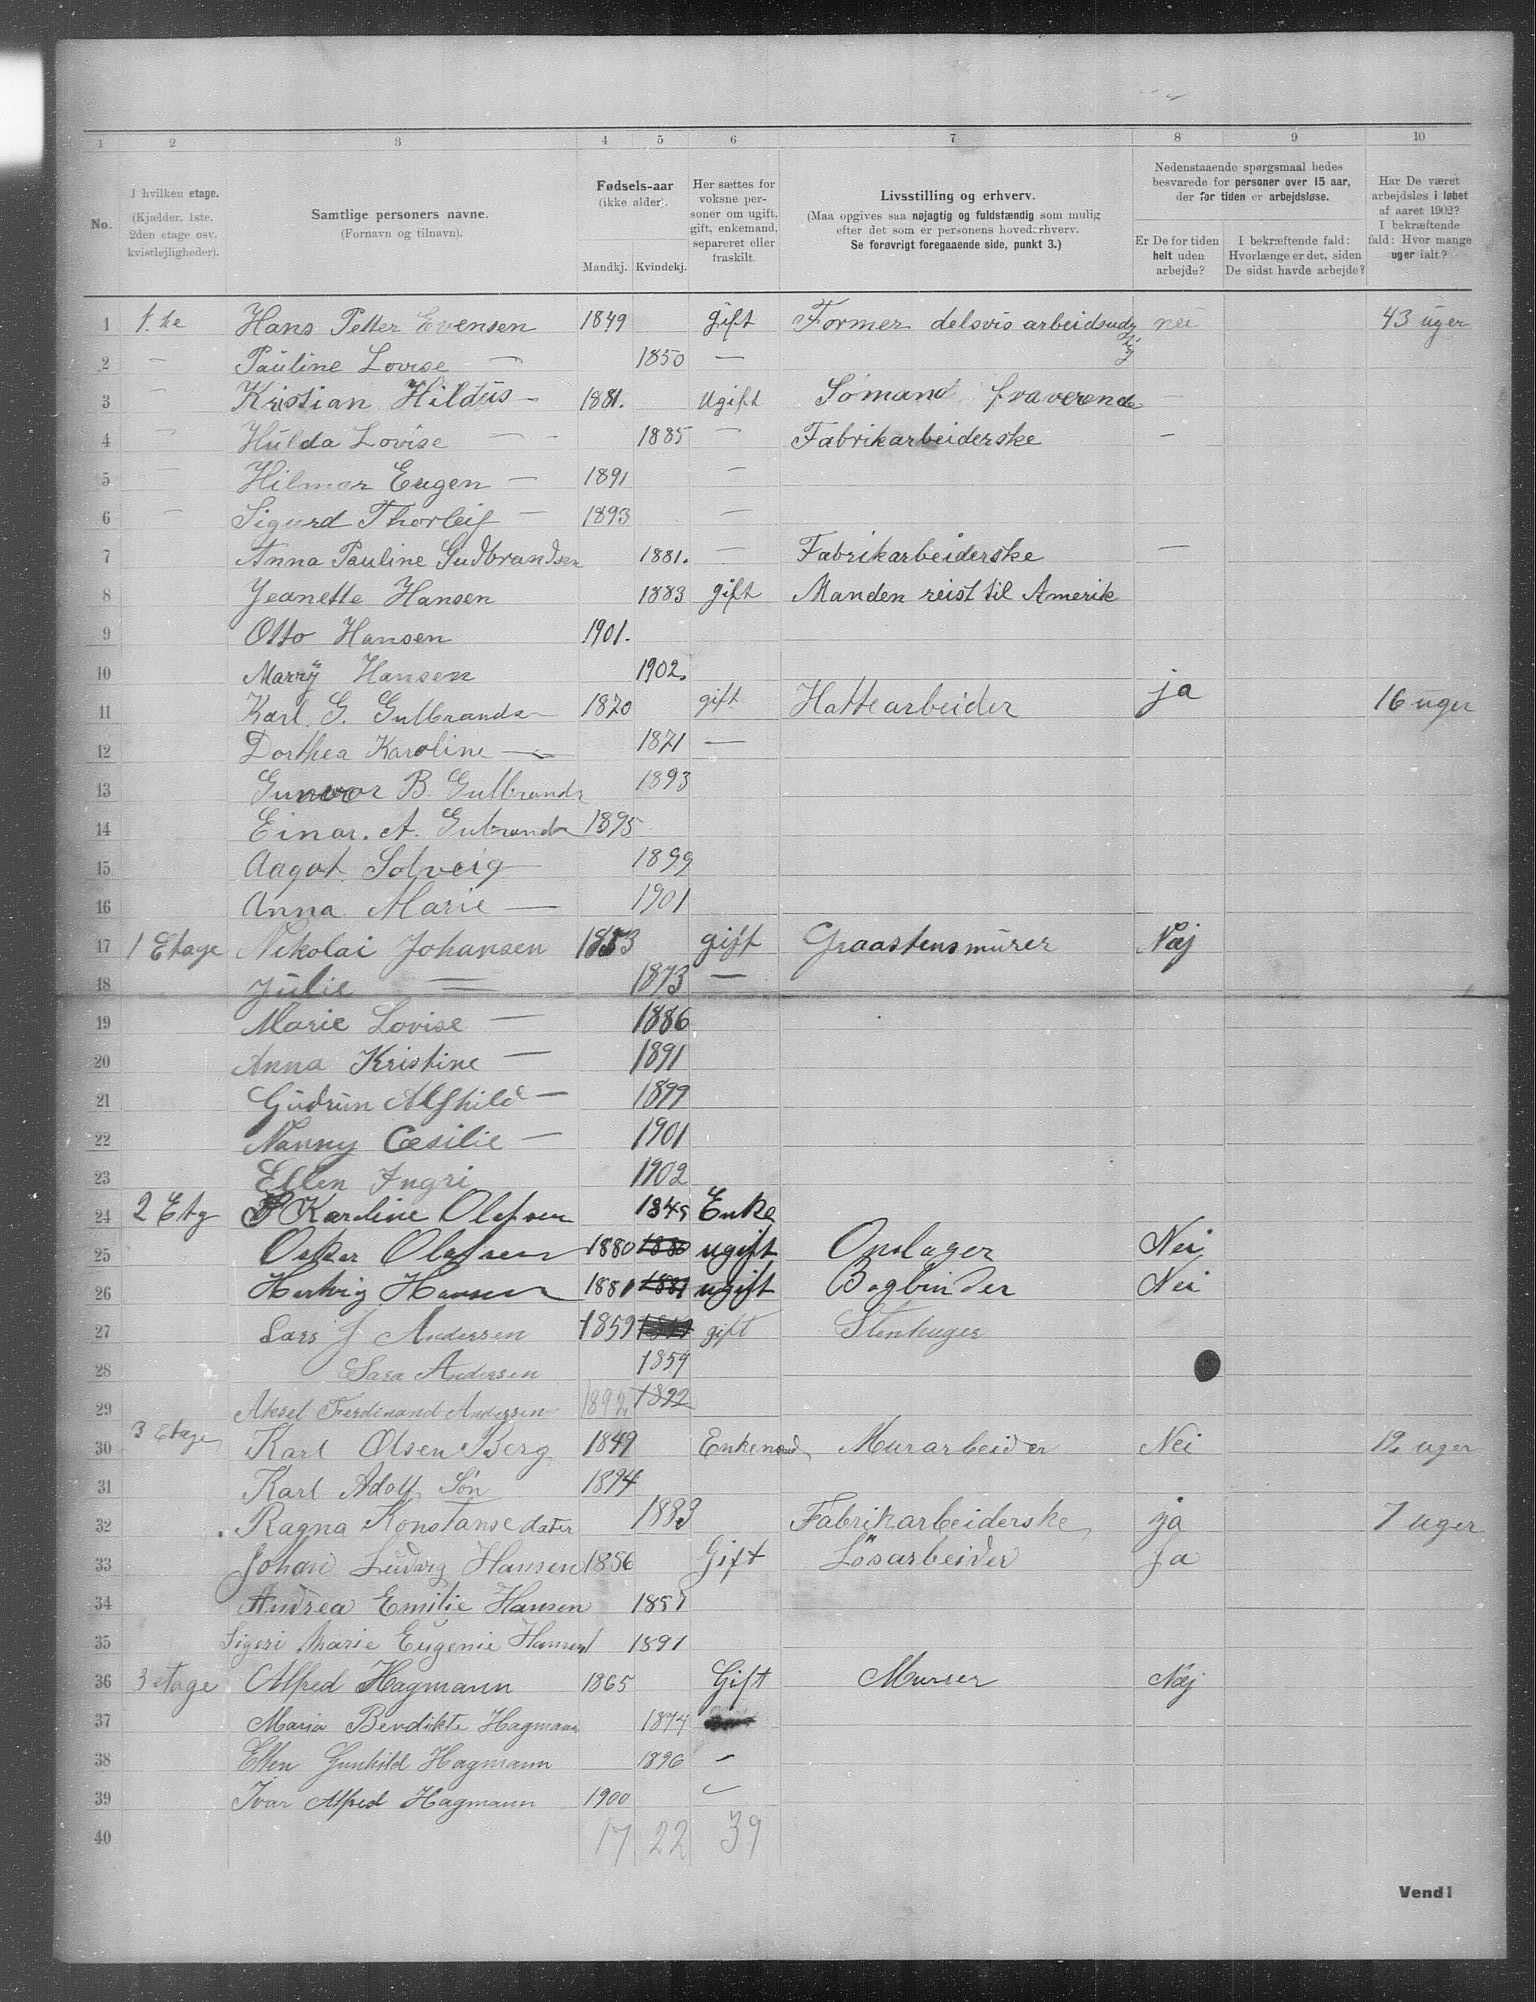 1 2 3 4 5 6 7 8 9 10
No.
I hvilken etage.
(Kjælder, 1ste.
2den etage osv.
kvistlejligheder).
Samtlige personers navne.
(Fornavn og tilnavn).
Fødsels-aar
(ikke alder).
Mandkj. Kvindekj.
Her sættes for
voksne per-
soner om ugift,
gift, enkemand,
separeret eller
fraskilt.
Livsstilling og erhverv.
(Maa opgives saa nøjagtig og fuldstændig som mulig
efter det som er personens hoved:rhverv.
Se forøvrigt foregaaende side, punkt 3.)
Nedenstaaende spørgsmaal bedes
besvarede for personer over 15 aar,
der for tiden er arbejdsløse.
Er De for tiden
helt uden
arbejde?
I bekræftende fald:
Hvorlænge er det, siden
De sidst havde arbejde?
Har De været
arbejdsløs i løbet
af aaret 1902?
I bekræftende
fald: Hvor mange
uger ialt?
1 1.te Hans Petter Evensen 1849 gift Former delsvis arbeidsudygtig nei 43 uger
2 – Pauline Lovise — 1850 —
3 – Kristian Hildus – 1881. Ugift Sømand fraverende –
4 – Hulda Lovise — 1885 – Fabrikarbeiderske –
5 – Hilmar Eugen — 1891 –
6 – Sigurd Thorleif – 1893 –
7 Anna Pauline Gudbrandsen 1881. – Fabrikarbeiderske –
8 Jeanette Hansen 1883 gift Manden reist til Amerik
9 Otto Hansen 1901.
10 Marry Hansen 1902.
11 Karl. G. Gulbrands 1870 gift Hattearbeider ja 16 uger
12 Dorthea Karoline — 1871 —
13 Gunvor B. Gulbrands 1893
14 Einar. A. Gulbrands 1895
15 Aagot. Solveig — 1899
16 Anna Marie — 1901
17 1 Etage Nikolai Johansen 1853 gift Graastensmurer Næj
18 Julie — 1873 —
19 Marie Lovise — 1886
20 Anna Kristine — 1891
21 Gudrun Alfhild — 1899
22 Nanny Cæsilie — 1901
23 Ellen Ingri 1902
24 2 Etg Karoline Olafsen 1845 Enke
25 Osker Olafsen 1880 1880 ugift Opslager Nei
26 Hertvig Hansen 1881 1881 ugift Bogbinder Nei
27 Lars J Andersen 1859 gift Stenhuger
28 Sara Andersen 1859
29 Aksel Ferdinand Andersen 1892 1892
30 3 Etage Karl Olsen Berg 1849 Enkemand Murarbeider Nei 12 uger
31 Karl Adolf Søn 1894
32 Ragna Konstanse dater 1883 Fabrikarbeiderske ja 7 uger
33 Johan Ludvig Hansen 1856 Gift Løsarbeider Ja
34 Andrea Emilie Hansen 1857
35 Sigeri Marie Eugenie Hansen 1891
36 3 etage Alfred Hagmann 1865 Gift Murer Næj
37 Maria Bendikte Hagmann 1874
38 Ellen Gunhild Hagmann 1896 –
39 Ivar Alfred Hagmann 1900 –
40 17 22 39
Vend!